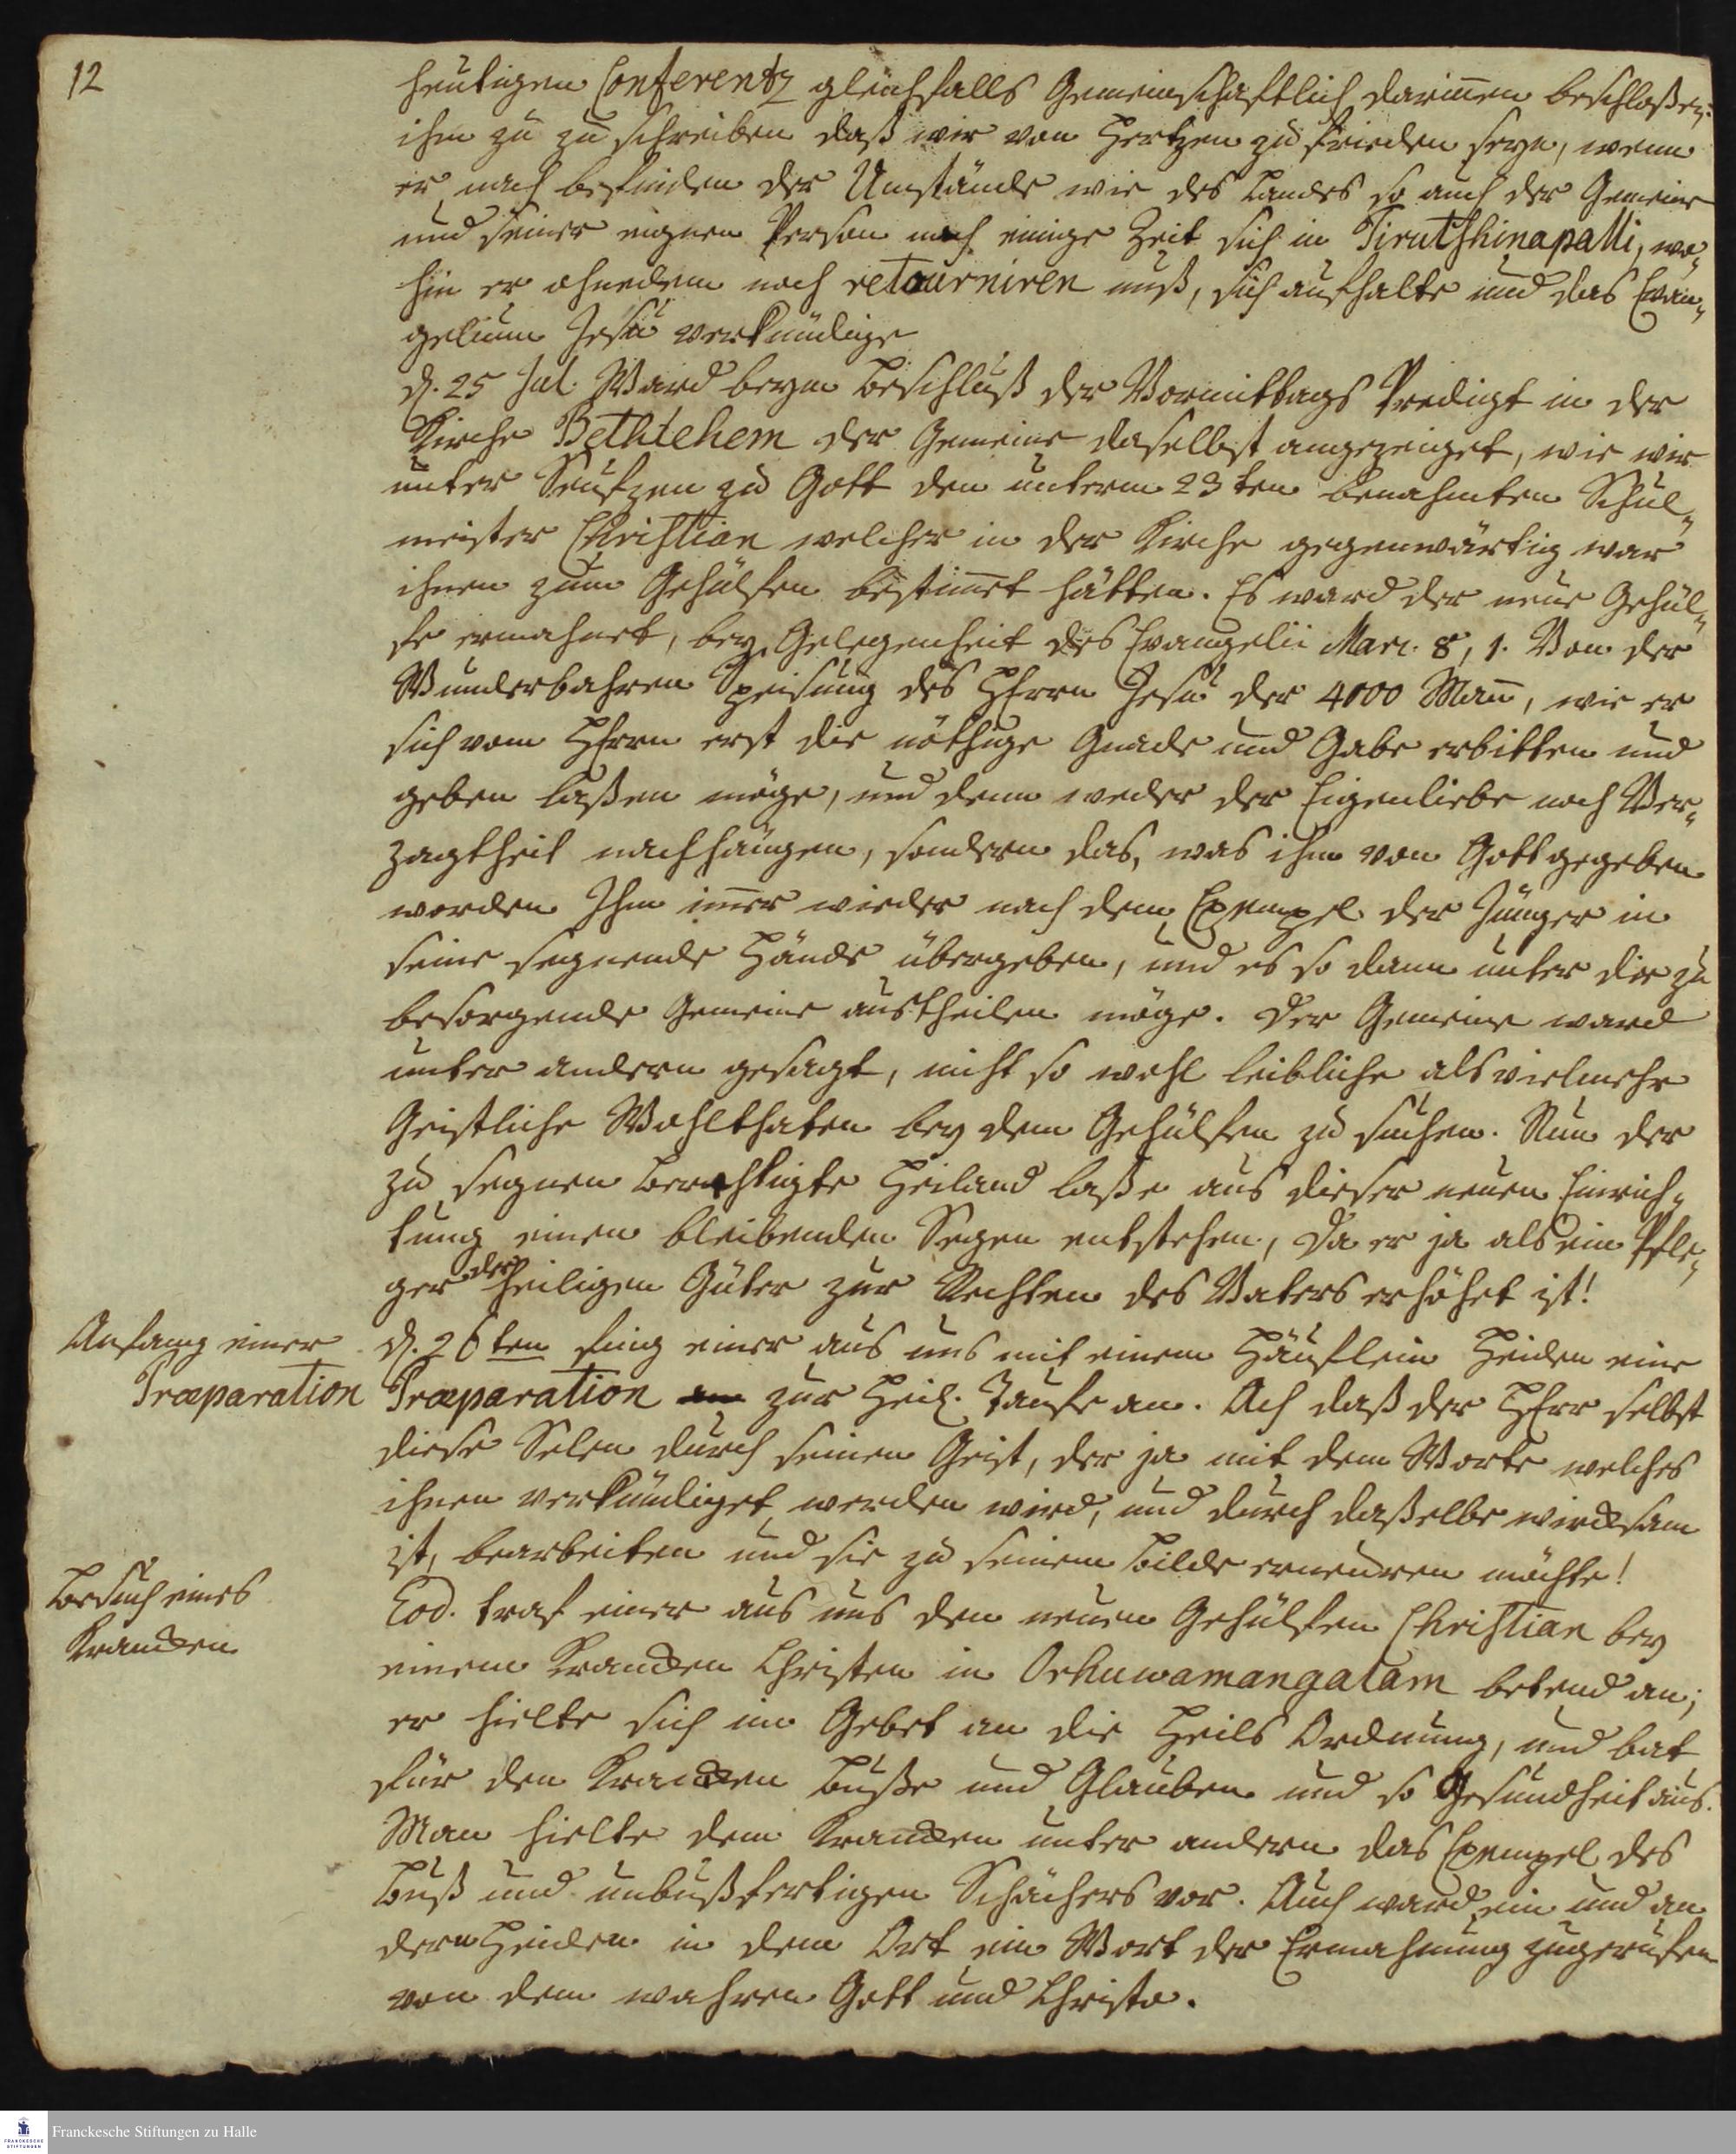 12
heutigen Conferentz gleichfalls Gemeinschaftlich darinnen beschloßen:
ihm zu zu schreiben daß wir von Hertzen zu frieden seyn, wenn
er nach befinden der Umstände wie des Landes so auch der Gemeine
und seiner eignen Person noch einige Zeit sich in Tirutshinapalli, wo-
hin er ohnedem noch retourniren muß, sich aufhalte und das Evan-
gelium Jesu verkündige
d. 25 Jul. Ward beym Beschluß der Vormittags Predigt in der
Kirche Bethlehem der Gemeine daselbst angezeiget, wie wir
unter Seufzen zu Gott den unterm 23ten benahmten Schul-
meister Christian welcher in der Kirche gegenwärtig war
ihnen zum Gehülfen bestim̄et hätten. Es ward der neue Gehül-
fe ermahnet, bey Gelegenheit des Evangelii Marc. 8, 1. Von der
Wunderbahren Speisung des HErrn Jesu der 4000 Man̄, wie er
sich vom HErrn erst die nöthige Gnade und Gabe erbitten und
geben laßen möge, und denn weder der Eigenliebe noch Ver-
zagtheit nachhängen, sondern das, was ihm von Gott gegeben
worden Ihm im̄er wieder nach dem Exempel der Jünger in
seine segnende Hände übergeben, und es so dann unter die zu
besorgende Gemeine austheilen möge. Der Gemeine ward
unter andern gesagt, nicht so wohl leibliche als vielmehr
Geistliche Wohlthaten bey dem Gehülfen zu suchen. Nun der
zu segnen berechtigte Heiland laße aus dieser neuen Einrich-
tung einen bleibenden Segen entstehen, Da er ja als ein Pfle-
ger der heiligen Güter zur Rechten des Vaters erhöhet ist!
Anfang einer
Præparation
d. 26ten fing einer aus uns mit einem Häuflein Heiden eine
Præparation an zur Heil. Taufe an. Ach daß der HErr selbst
diese Selen durch seinen Geist, der ja mit dem Worte welches
ihnen verkündiget werden wird, und durch daßelbe wircksam
ist, bearbeiten und sie zu seinem Bilde erneuren möchte!
Besuch eines
Krancken
Eod. traf einer aus uns den neuen Gehülfen Christian bey
einem Krancken Christen in Orhuwamangalam betend an;
er hielte sich im Gebet an die Heils Ordnung, und bat
für den Krancken Buße und Glauben und so Gesundheit aus.
Man hielte dem Krancken unter andern das Exempel des
Buß und unbußfertigen Schächers vor. Auch ward ein und an
dern Heiden in dem Ort ein Wort der Ermahnung zugerufen
von dem wahren Gott und Christo.
FRANCKESCHE
STIFTUNGEN
Franckesche Stiftungen zu Halle